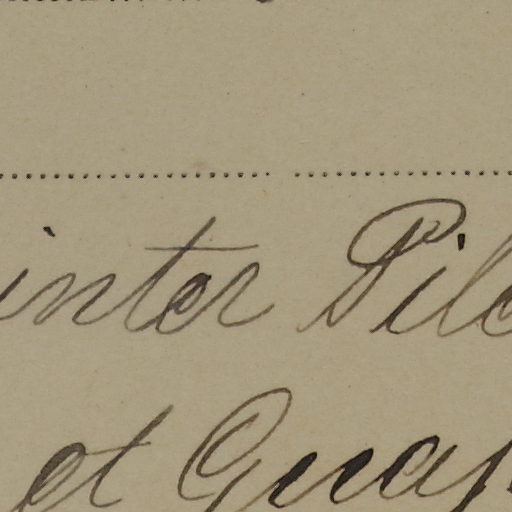 inter Pile
et Guap